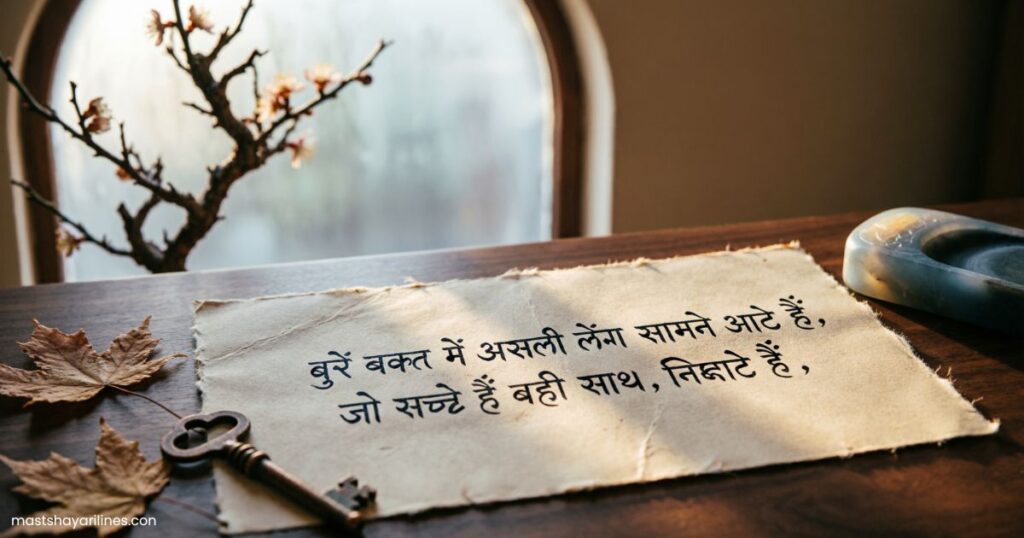 बुरें बकत में असली लेंग सामने आटे हैं,
जो सच्टे हैं बही साथ, निभाटे हैं,
mastshayarilines.com